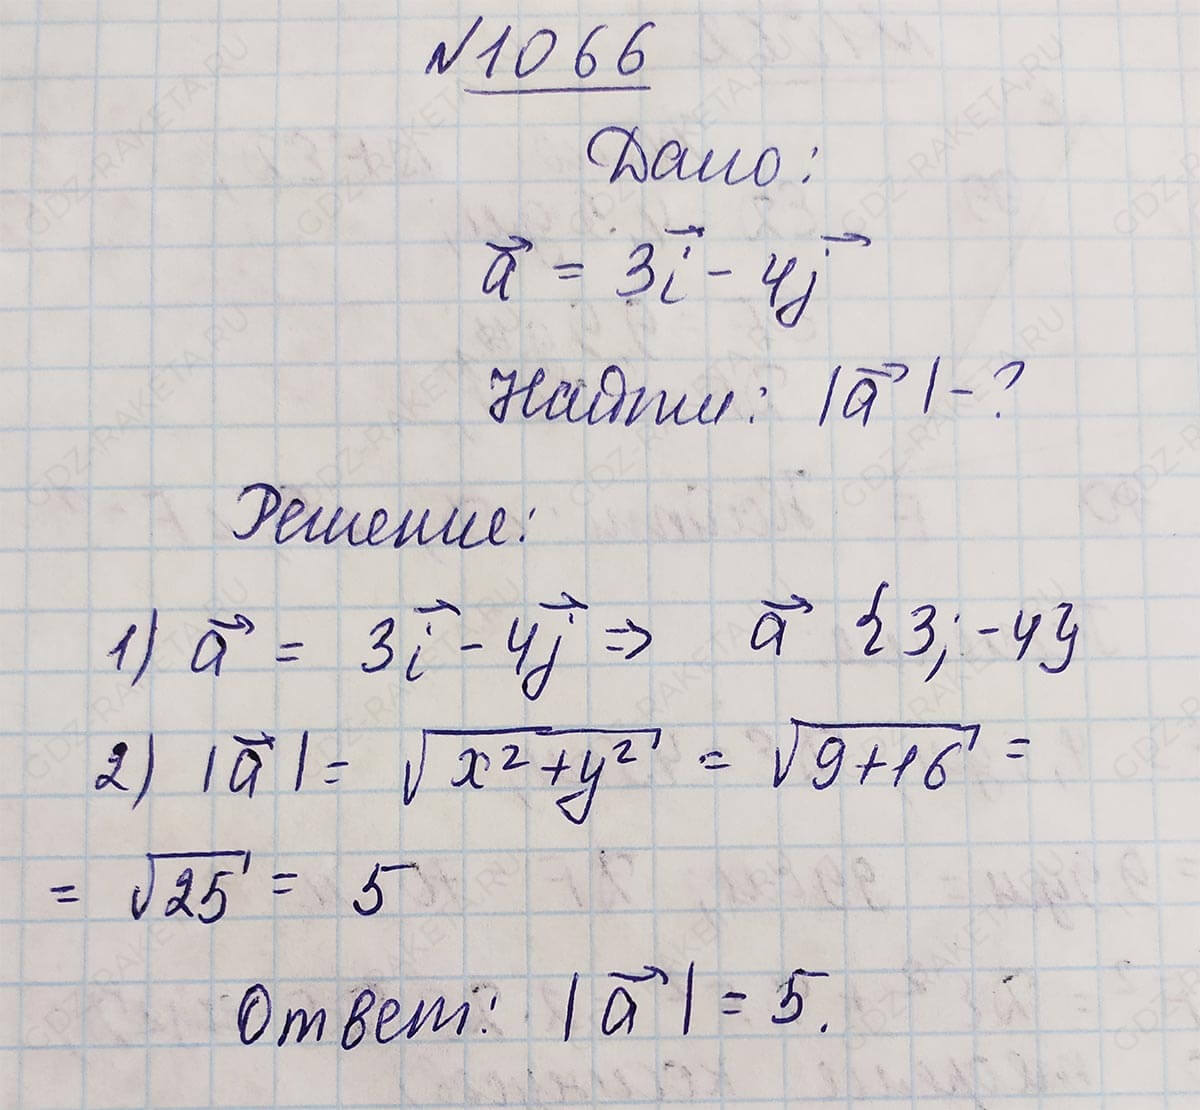 №1066
Дано:
a⃗ = 3i⃗ - 4j⃗
Найти: |a⃗| - ?
Решение:
1) a⃗ = 3i⃗ - 4j⃗ => a⃗ {3; -4}
2) |a⃗| = √(x²+y²) = √(9+16) =
= √25 = 5
Ответ: |a⃗| = 5.
GDZ-RAKETA.RU